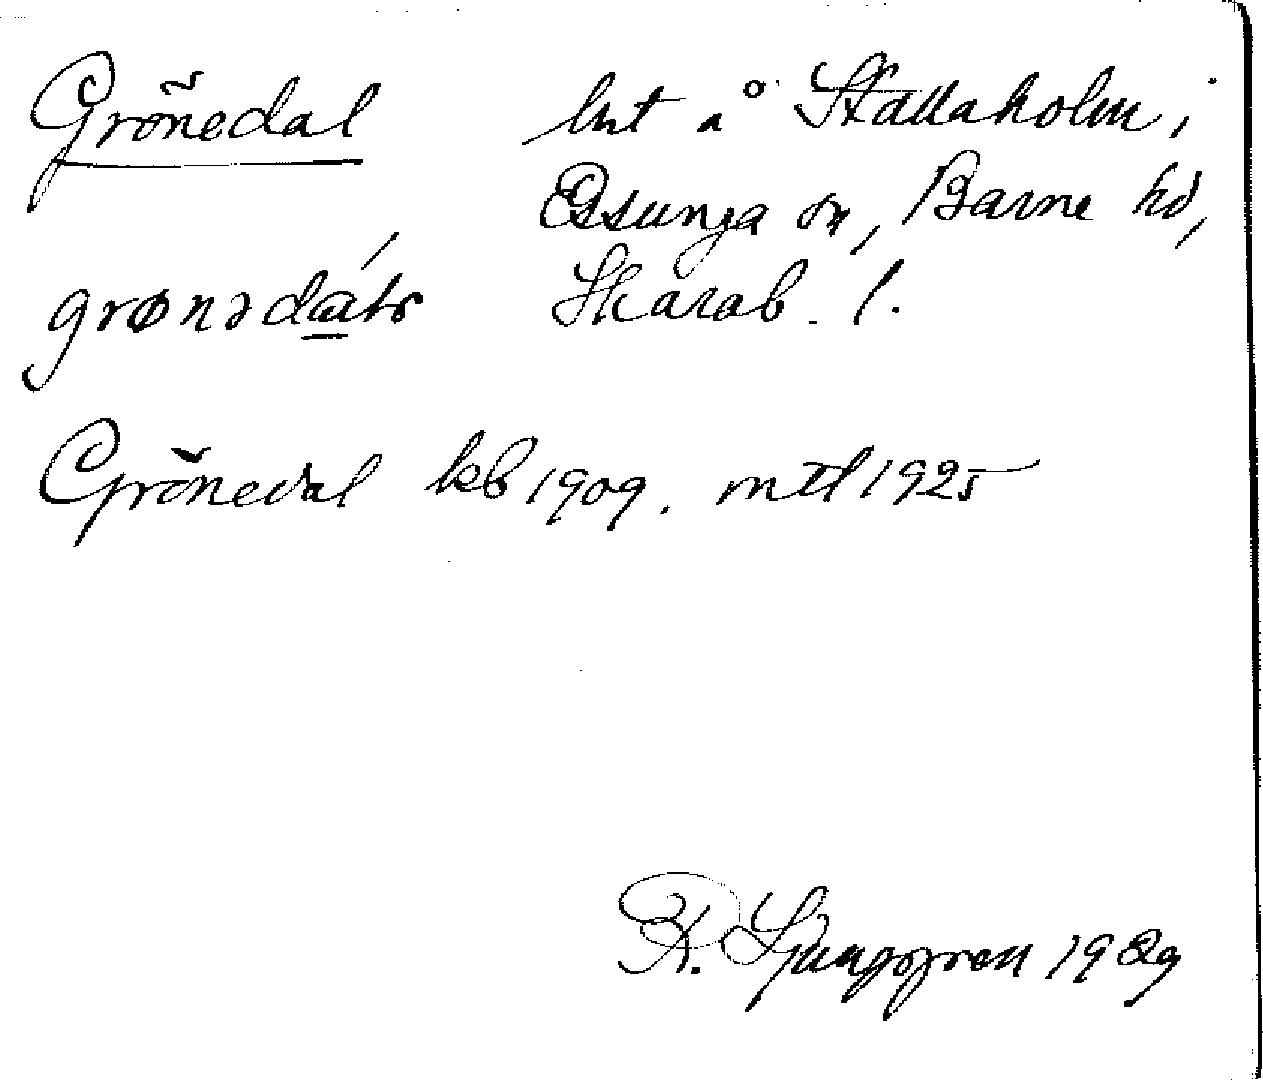 Grönedal lht å Stallaholm i
Essunga sn, Barne hd,
grønədáts Skarab. l.
Grönedal kb 1909. mtl 1925
K. Ljunggren 1929